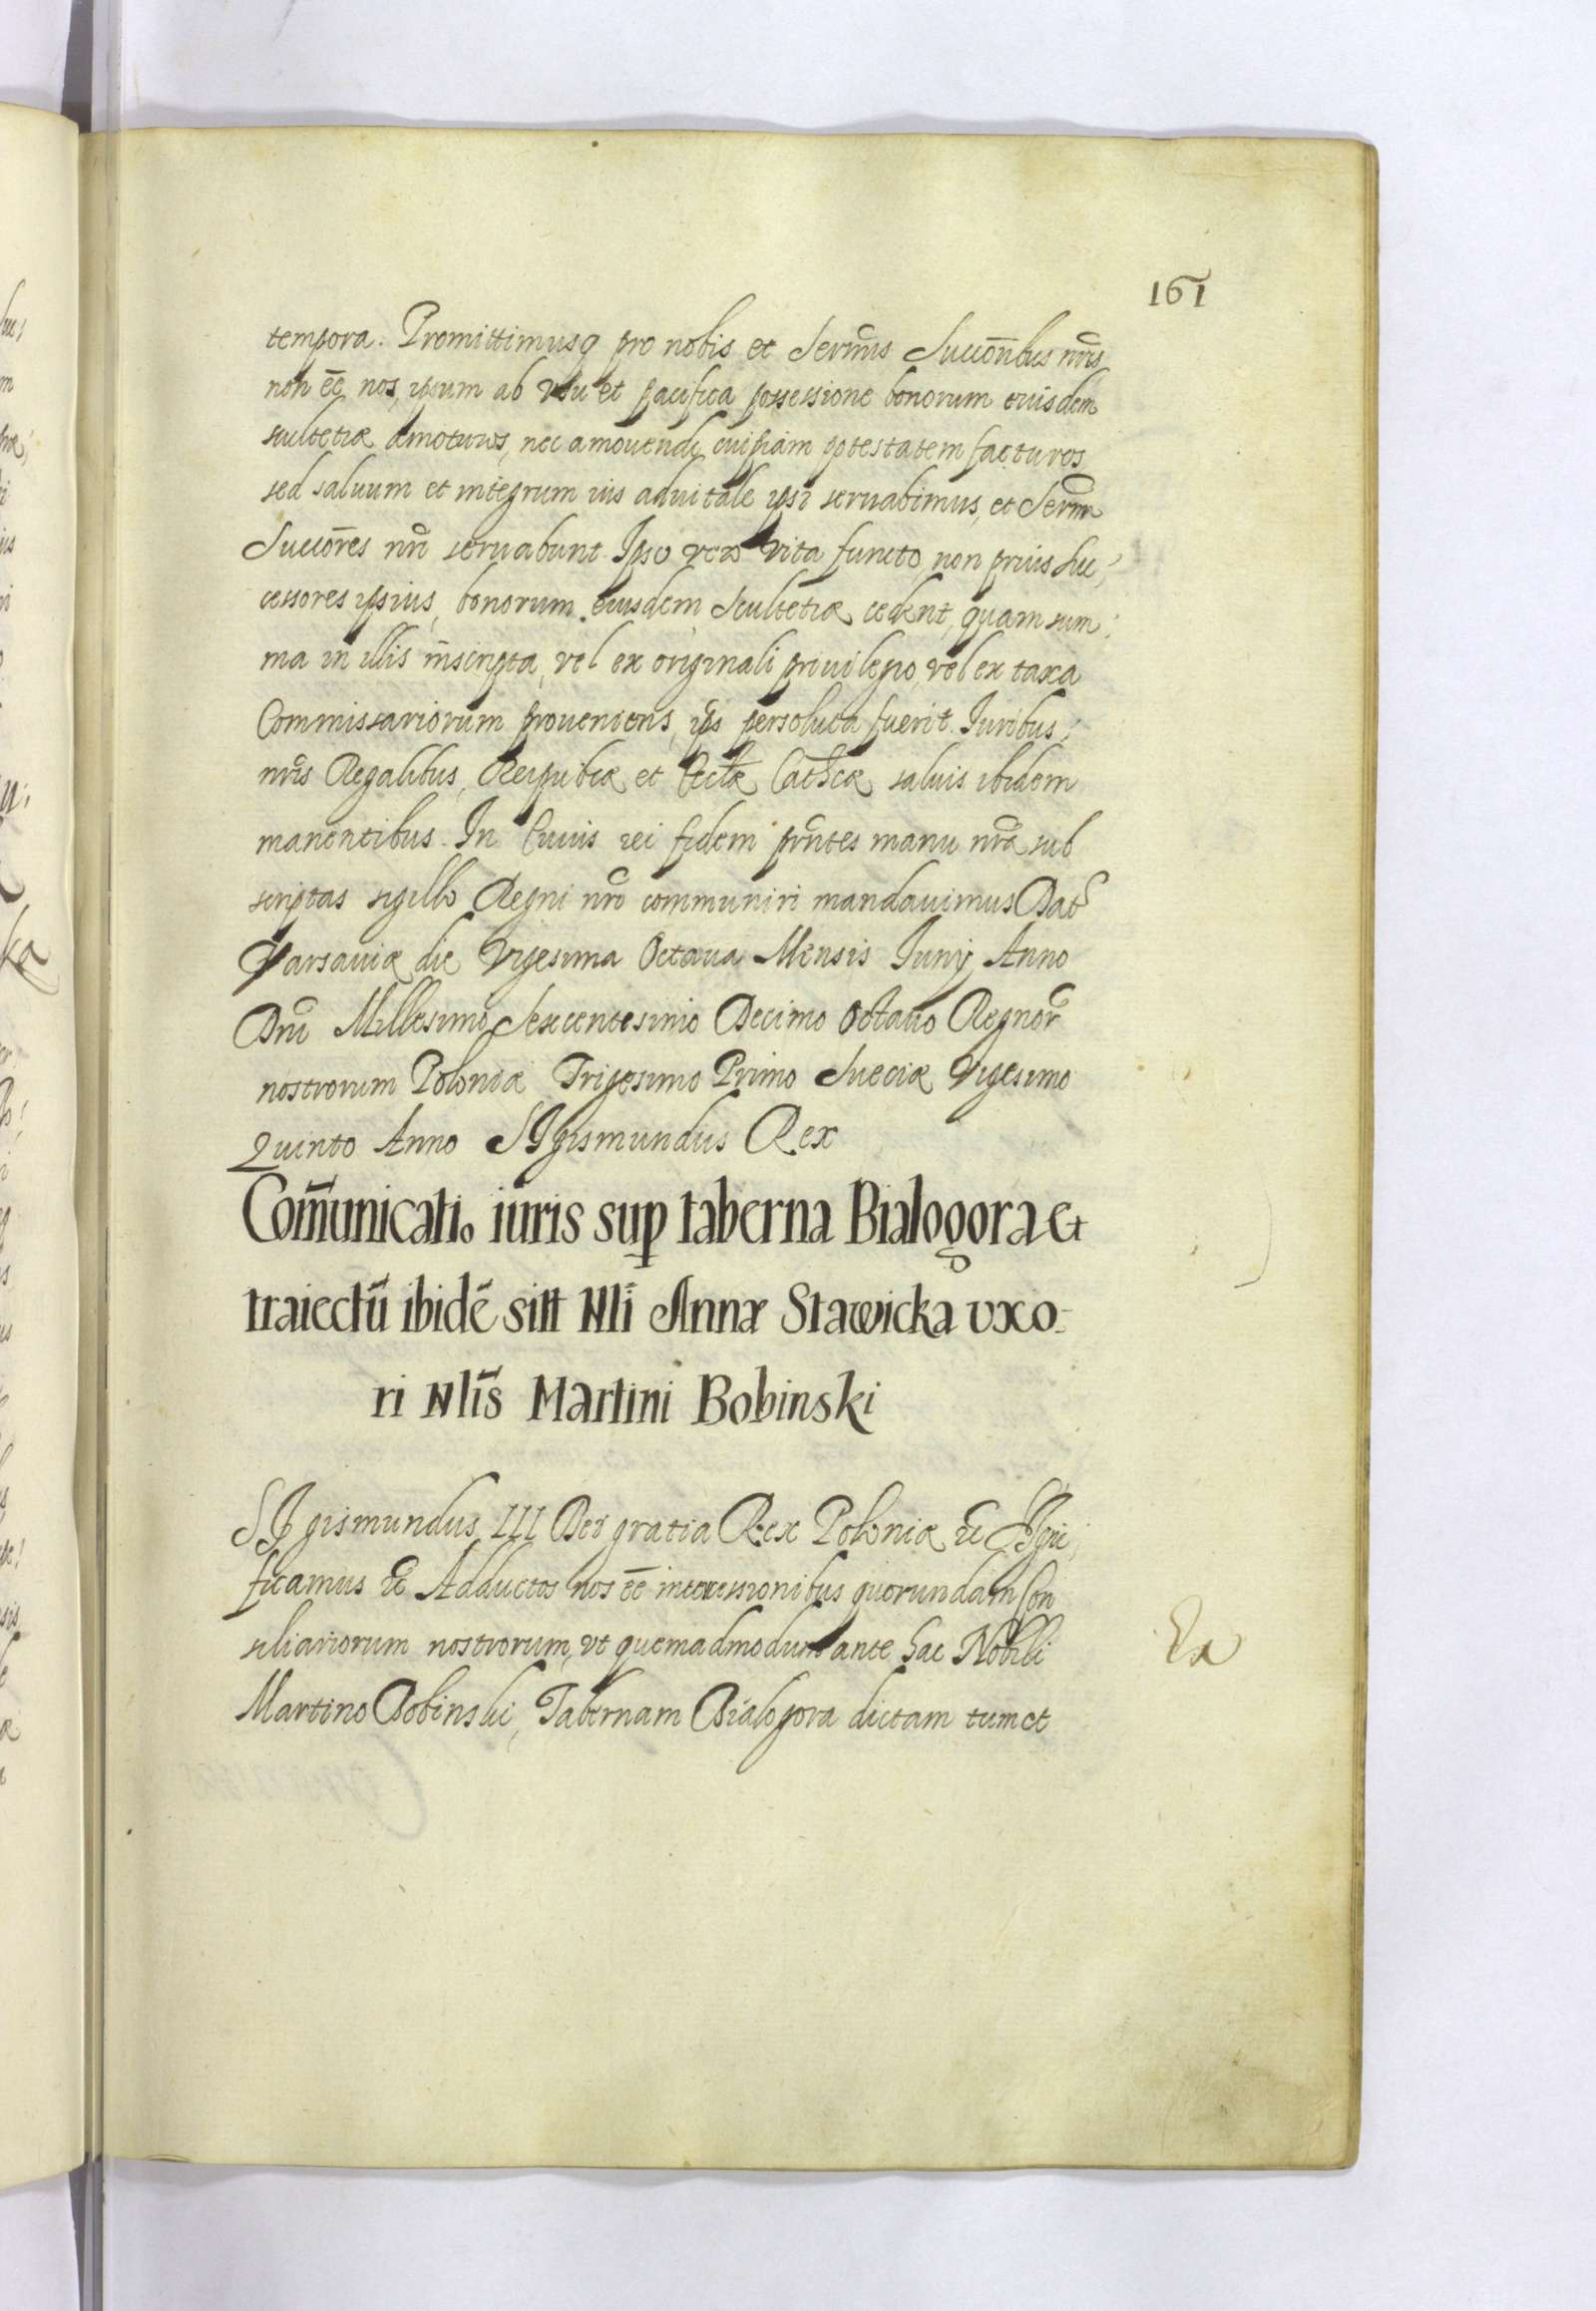 161
tempora. Promittimusq pro nobis et Serm̃is Succõribus nr̃is
non eē nos, ipsum ab vsu et pacifica possessione bonorum eiusdem
scultetiæ amoturos, nec amouendi cuipiam potestatem facturos
sed saluum et integrum ius aduitale ipsi seruabimus, et Serm̃i
Succõres nr̃i seruabunt. Ipso vero vita functo, non prius suc,
cessores ipsius, bonorum eiusdem Scultetiæ cedent, quam sum,
ma in illis inscripta, vel ex originali priuilegio, vel ex taxa
Commissariorum proueniens, ip̃is persoluta fuerit. Iuribus,
nr̃is Regalibus, Reipub̃cæ et Eccl̃æ Cath̃cæ saluis ibidem
manentibus. In Cuius rei fidem pñtes manu nr̃a sub
scriptas sigillo Regni nr̃i communiri mandauimus Dat̃
Varsauiæ die Vigesima Octaua Mensis Iunij Anno
Dñi Millesimo Sexcentesimo Decimo Octauo Regnor̃
nostrorum Poloniæ Trigesimo Primo Sueciæ Vigesimo
Quinto Anno SIgismundus Rex
Com̃unicatio iuris sup taberna Bialogora et
traiectū ibidē sitt Nli Annæ Stawicka vxo-
ri Nlis̄ Martini Bobinski
SIgismundus III Dei gratia Rex Poloniæ &c SIgni,
ficamus &c Adductos nos eē intercessionibus quorundam Con
siliariorum nostrorum, vt quemadmodum ante hac Nobili
Martino Bobinski, Tabernam Bialogora dictam tum et